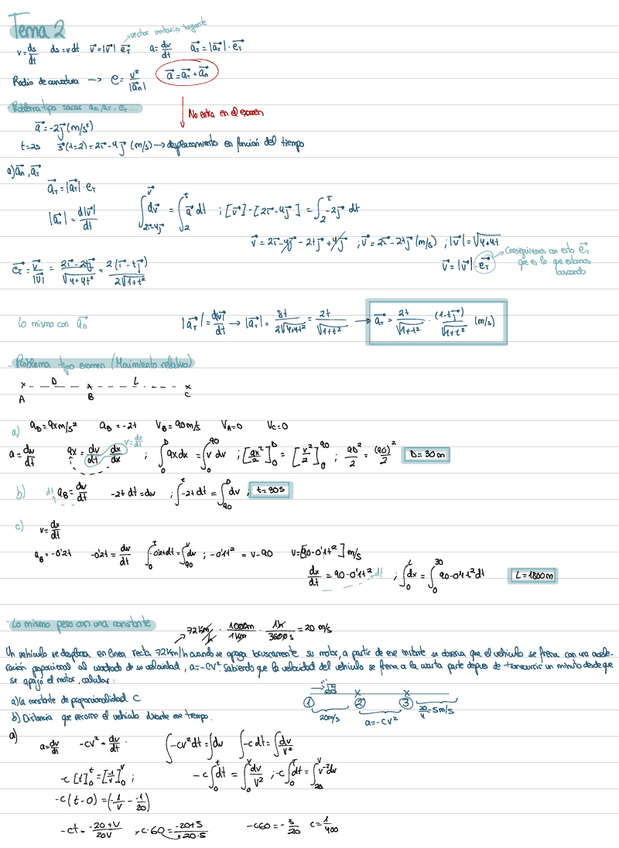 Tema 2
vector unitario tangente
v = ds/dt   ds = v dt   v⃗ = |v⃗| e⃗τ   a = dv/dt   a⃗τ = |a⃗τ| · e⃗τ
Radio de curvatura → ρ = v²/|a⃗n|   a⃗ = a⃗τ + a⃗n
No entra en el examen
Problema tipo sacar an, aτ, eτ ...
a⃗ = -2j⃗ (m/s²)
t=2s   (t=2) = 2i⃗ - 4j⃗ (m/s) → desplazamiento en función del tiempo
a) a⃗n, a⃗τ
a⃗τ = |a⃗τ| · eτ
|a⃗τ| = d|v⃗|/dt   ∫_{2i-4j}^{v⃗} dv⃗ = ∫_2^t a⃗ dt ; [v⃗] - [2i⃗ - 4j⃗] = ∫_2^t -2j⃗ dt
v⃗ = 2i⃗ - 4j⃗ - 2tj⃗ + 4j⃗ ; v⃗ = 2i⃗ - 2tj⃗ (m/s) ; |v⃗| =
v⃗ = |v⃗| · e⃗τ   Conseguiremos con esto e⃗τ que es lo que estamos buscando
e⃗τ = v⃗/|v⃗| = (2i⃗ - 2tj⃗)/√(4+4t²) = 2(i⃗ - tj⃗)/(2√(1+t²))
Lo mismo con a⃗n   |a⃗τ| = d|v⃗|/dt → |a⃗τ| = 8t/(2√(4+4t²)) = 2t/√(1+t²) → a⃗τ = 2t/√(1+t²) · (i-tj⃗)/√(1+t²) (m/s)
Problema tipo examen (Movimiento relativo)
x D x L x
A B C
a) aD = 9x m/s²   aB = -2t   VB = 90 m/s   VA = 0   VC = 0
v = dx/dt
a = dv/dt   9x = dv/dt dx/dx ; ∫_0^D 9x dx = ∫_0^90 v dv ; [9x²/2]_0^D = [v²/2]_0^90 ; 9D²/2 = (90)²/2   D = 30 m
b) aB = dv/dt   -2t dt = dv ; ∫_0^t -2t dt = ∫_90^0 dv ; t = 30 s
c) v = dx/dt
aB = -0'2t   -0'2t = dv/dt   ∫_0^t -0'2t dt = ∫_90^v dv ; -0'1t² = v - 90   v = [90 - 0'1t²] m/s
dx/dt = 90 - 0'1t² dt ; ∫_0^L dx = ∫_0^30 90 - 0'1t² dt   L = 1800 m
Lo mismo pero con una constante
72 km/h · 1000m/1km · 1h/3600s = 20 m/s
Un vehículo se desplaza en línea recta 72 km/h cuando se apaga bruscamente su motor, a partir de ese instante se observa que el vehículo se frena con una acele-
ración proporcional al cuadrado de su velocidad, a = -CV². Sabiendo que la velocidad del vehículo se frena a la cuarta parte después de transcurrir un minuto desde que
se apagó el motor, calcular:
a) la constante de proporcionalidad C
b) Distancia que recorre el vehículo durante ese tiempo.
1 2 3
20m/s   a = -CV²   20/4 = 5 m/s
a) a = dv/dt   -cv² = dv/dt   ∫ -cv² dt = ∫ dv   ∫ -c dt = ∫ dv/v²
-c [t]_0^t = [-1/v]_0^v ;   -c ∫_0^t dt = ∫_0^v dv/v² ; -c ∫_0^t dt = ∫_20^v v⁻² dv
-c(t-0) = (-1/v - -1/20)
-ct = (-20+v)/20v , -c·60 = (-20+5)/(20·5)   -c60 = -3/20   c = 1/400